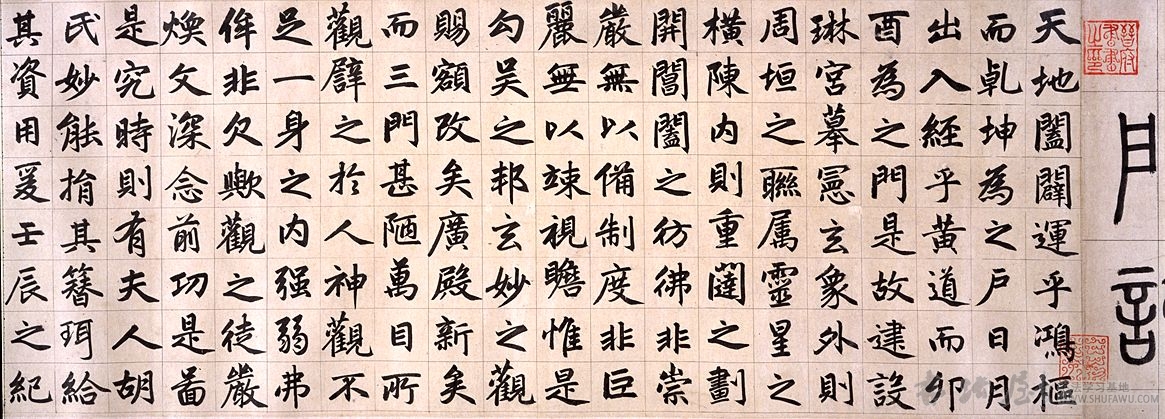 天地闔闢運乎鴻樞
而乹坤為之戶日月
出入經乎黃道而卯
酉為之門是故建設
琳宮摹憲玄象外則
周垣之聯属靈星之
橫陳内則重闥之劃
開閶闔之彷彿非崇
嚴無以備制度非巨
麗無以竦視瞻惟是
勾吴之邦玄妙之觀
賜額改矣廣殿新矣
而三門甚陋萬目所
觀譬之於人神觀不
足一身之内强弱弗
侔非欠歟觀之徒嚴
煥文深念前功是啚
是究時則有夫人胡
氏妙能捐其簪珥給
其資用爰壬辰之紀
晉府書畫之印
WWW.SHUFAWU.COM